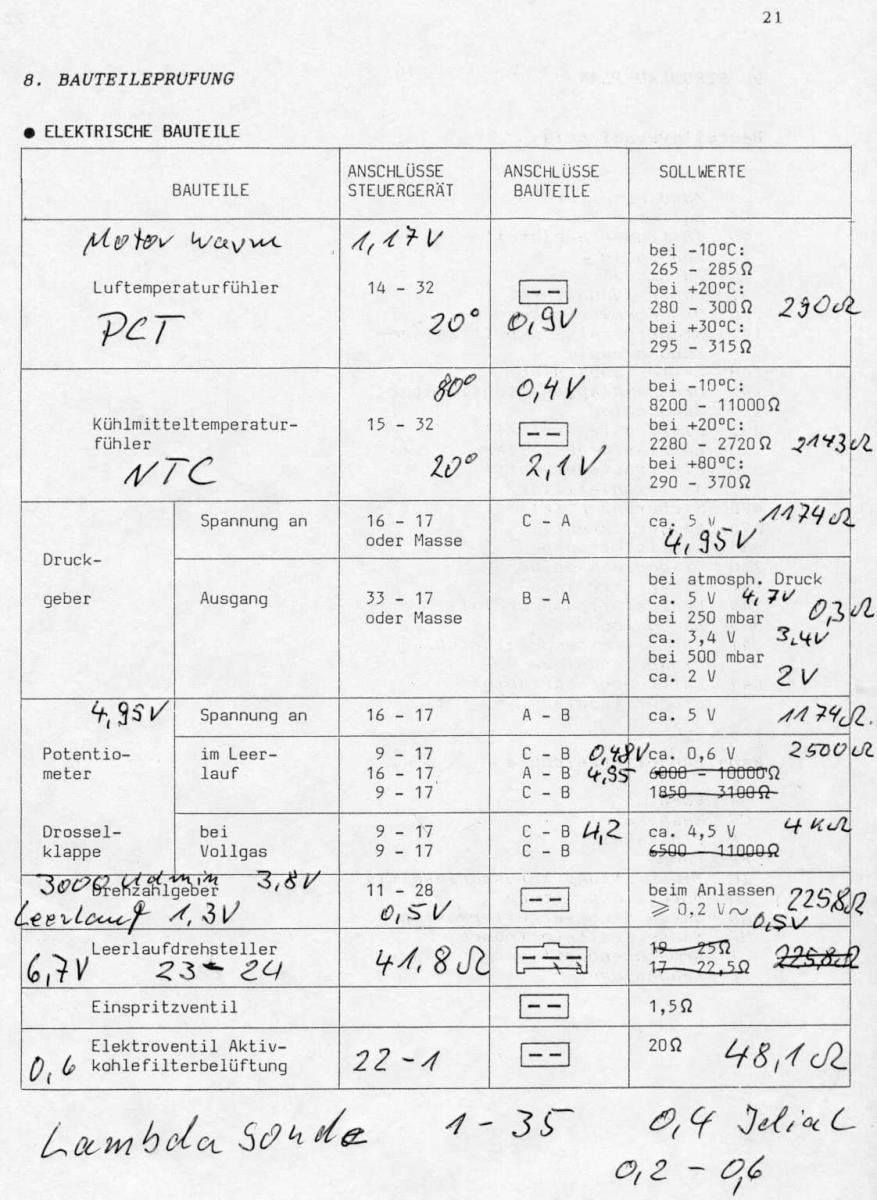 21
8. BAUTEILEPRUFUNG
● ELEKTRISCHE BAUTEILE
BAUTEILE
ANSCHLÜSSE STEUERGERÄT
ANSCHLÜSSE BAUTEILE
SOLLWERTE
Motor warm 1,17V
Luftemperaturfühler 14 - 32
PCT 20° 0,9V
bei -10°C:
265 - 285Ω
bei +20°C:
280 - 300Ω 290Ω
bei +30°C:
295 - 315Ω
80° 0,4V
Kühlmitteltemperatur- 15 - 32
fühler
NTC 20° 2,1V
bei -10°C:
8200 - 11000Ω
bei +20°C:
2280 - 2720Ω 2143Ω
bei +80°C:
290 - 370Ω
Druck-
geber
Spannung an 16 - 17 C - A ca. 5 V 1174Ω
oder Masse 4,95V
Ausgang 33 - 17 B - A
oder Masse
bei atmosph. Druck
ca. 5 V 4,7V
bei 250 mbar 0,3Ω
ca. 3,4 V 3,4V
bei 500 mbar
ca. 2 V 2V
4,95V Spannung an 16 - 17 A - B ca. 5 V 1174Ω.
Potentio-
meter
im Leer- 9 - 17 C - B 0,48V ca. 0,6 V 2500Ω
lauf 16 - 17 A - B 4,95 6000 - 10000Ω
9 - 17 C - B 1850 - 3100Ω
Drossel-
klappe
bei 9 - 17 C - B 4,2 ca. 4,5 V 4KΩ
Vollgas 9 - 17 C - B 6500 - 11000Ω
3000 Udmin 3,8V
Drehzahlgeber 11 - 28 beim Anlassen 225,8Ω
Leerlauf 1,3V 0,5V ≥ 0,2 V~
0,5V
Leerlaufdrehsteller 19 - 25Ω
6,7V 23 - 24 41,8Ω 17 - 22,5Ω 225,8Ω
Einspritzventil 1,5Ω
Elektroventil Aktiv- 20Ω
0,6 kohlefilterbelüftung 22-1 48,1Ω
Lambda Sonde 1 - 35 0,4
0,2 - 0,6